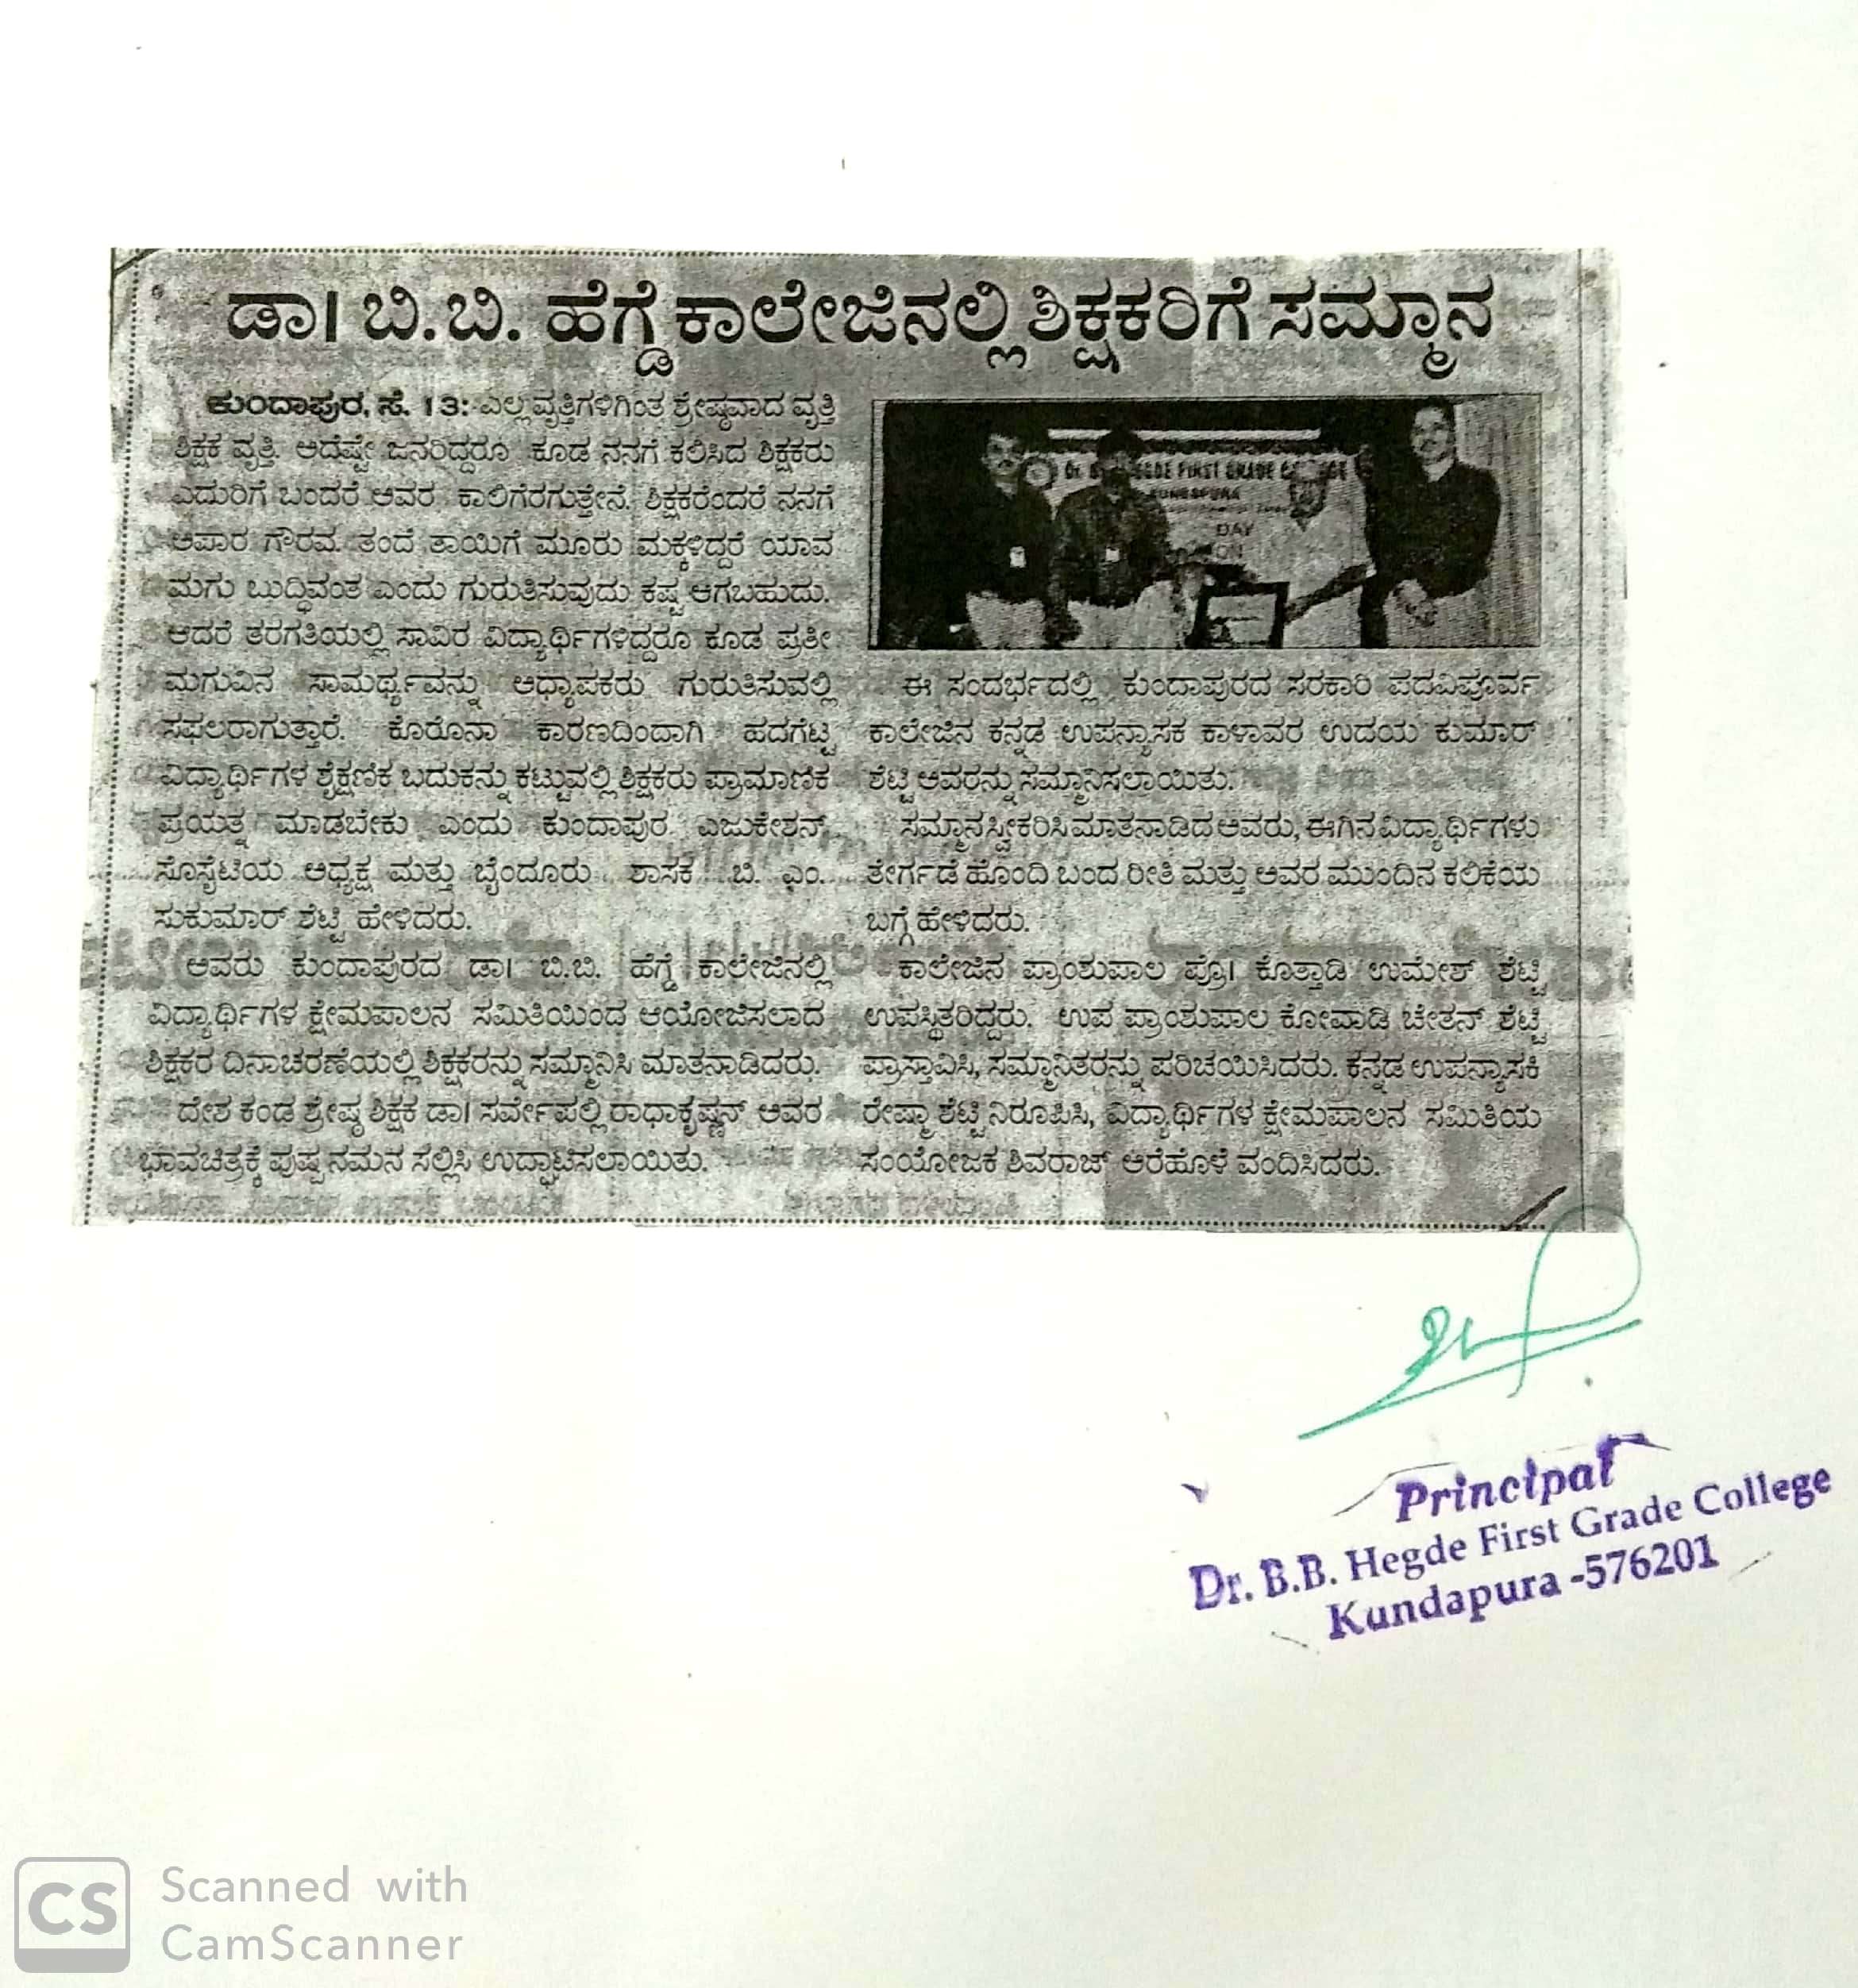 ಡಾ। ಬಿ.ಬಿ. ಹೆಗ್ಡೆ ಕಾಲೇಜಿನಲ್ಲಿ ಶಿಕ್ಷಕರಿಗೆ ಸಮ್ಮಾನ
ಕುಂದಾಪುರ, ಸೆ. 13: ಎಲ್ಲ ವೃತ್ತಿಗಳಿಗಿಂತ ಶ್ರೇಷ್ಠವಾದ ವೃತ್ತಿ
ಶಿಕ್ಷಕ ವೃತ್ತಿ. ಅದೆಷ್ಟೇ ಜನರಿದ್ದರೂ ಕೂಡ ನನಗೆ ಕಲಿಸಿದ ಶಿಕ್ಷಕರು
ಎದುರಿಗೆ ಬಂದರೆ ಅವರ ಕಾಲಿಗೆರಗುತ್ತೇನೆ. ಶಿಕ್ಷಕರೆಂದರೆ ನನಗೆ
ಅಪಾರ ಗೌರವ. ತಂದೆ ತಾಯಿಗೆ ಮೂರು ಮಕ್ಕಳಿದ್ದರೆ ಯಾವ
ಮಗು ಬುದ್ಧಿವಂತ ಎಂದು ಗುರುತಿಸುವುದು ಕಷ್ಟ ಆಗಬಹುದು.
ಆದರೆ ತರಗತಿಯಲ್ಲಿ ಸಾವಿರ ವಿದ್ಯಾರ್ಥಿಗಳಿದ್ದರೂ ಕೂಡ ಪ್ರತೀ
ಮಗುವಿನ ಸಾಮರ್ಥ್ಯವನ್ನು ಅಧ್ಯಾಪಕರು ಗುರುತಿಸುವಲ್ಲಿ
ಸಫಲರಾಗುತ್ತಾರೆ. ಕೊರೊನಾ ಕಾರಣದಿಂದಾಗಿ ಹದಗೆಟ್ಟ
ವಿದ್ಯಾರ್ಥಿಗಳ ಶೈಕ್ಷಣಿಕ ಬದುಕನ್ನು ಕಟ್ಟುವಲ್ಲಿ ಶಿಕ್ಷಕರು ಪ್ರಾಮಾಣಿಕ
ಪ್ರಯತ್ನ ಮಾಡಬೇಕು ಎಂದು ಕುಂದಾಪುರ ಎಜುಕೇಶನ್
ಸೊಸೈಟಿಯ ಅಧ್ಯಕ್ಷ ಮತ್ತು ಬೈಂದೂರು ಶಾಸಕ ಬಿ. ಎಂ.
ಸುಕುಮಾರ್ ಶೆಟ್ಟಿ ಹೇಳಿದರು.
ಅವರು ಕುಂದಾಪುರದ ಡಾ। ಬಿ.ಬಿ. ಹೆಗ್ಡೆ ಕಾಲೇಜಿನಲ್ಲಿ
ವಿದ್ಯಾರ್ಥಿಗಳ ಕ್ಷೇಮಪಾಲನ ಸಮಿತಿಯಿಂದ ಆಯೋಜಿಸಲಾದ
ಶಿಕ್ಷಕರ ದಿನಾಚರಣೆಯಲ್ಲಿ ಶಿಕ್ಷಕರನ್ನು ಸಮ್ಮಾನಿಸಿ ಮಾತನಾಡಿದರು.
ದೇಶ ಕಂಡ ಶ್ರೇಷ್ಠ ಶಿಕ್ಷಕ ಡಾ। ಸರ್ವೇಪಲ್ಲಿ ರಾಧಾಕೃಷ್ಣನ್ ಅವರ
ಭಾವಚಿತ್ರಕ್ಕೆ ಪುಷ್ಪ ನಮನ ಸಲ್ಲಿಸಿ ಉದ್ಘಾಟಿಸಲಾಯಿತು.
FIRST GRADE
DAY
ಈ ಸಂದರ್ಭದಲ್ಲಿ ಕುಂದಾಪುರದ ಸರಕಾರಿ ಪದವಿಪೂರ್ವ
ಕಾಲೇಜಿನ ಕನ್ನಡ ಉಪನ್ಯಾಸಕ ಕಾಳಾವರ ಉದಯ ಕುಮಾರ್
ಶೆಟ್ಟಿ ಅವರನ್ನು ಸಮ್ಮಾನಿಸಲಾಯಿತು.
ಸಮ್ಮಾನ ಸ್ವೀಕರಿಸಿ ಮಾತನಾಡಿದ ಅವರು, ಈಗಿನ ವಿದ್ಯಾರ್ಥಿಗಳು
ತೇರ್ಗಡೆ ಹೊಂದಿ ಬಂದ ರೀತಿ ಮತ್ತು ಅವರ ಮುಂದಿನ ಕಲಿಕೆಯ
ಬಗ್ಗೆ ಹೇಳಿದರು.
ಕಾಲೇಜಿನ ಪ್ರಾಂಶುಪಾಲ ಪ್ರೊ। ಕೊತ್ತಾಡಿ ಉಮೇಶ್ ಶೆಟ್ಟಿ
ಉಪಸ್ಥಿತರಿದ್ದರು. ಉಪ ಪ್ರಾಂಶುಪಾಲ ಕೋವಾಡಿ ಚೇತನ್ ಶೆಟ್ಟಿ
ಪ್ರಾಸ್ತಾವಿಸಿ, ಸಮ್ಮಾನಿತರನ್ನು ಪರಿಚಯಿಸಿದರು. ಕನ್ನಡ ಉಪನ್ಯಾಸಕಿ
ರೇಷ್ಮಾ ಶೆಟ್ಟಿ ನಿರೂಪಿಸಿ, ವಿದ್ಯಾರ್ಥಿಗಳ ಕ್ಷೇಮಪಾಲನ ಸಮಿತಿಯ
ಸಂಯೋಜಕ ಶಿವರಾಜ್ ಆರೆಹೊಳೆ ವಂದಿಸಿದರು.
Principal
Dr. B.B. Hegde First Grade College
Kundapura -576201
CS
Scanned with
CamScanner